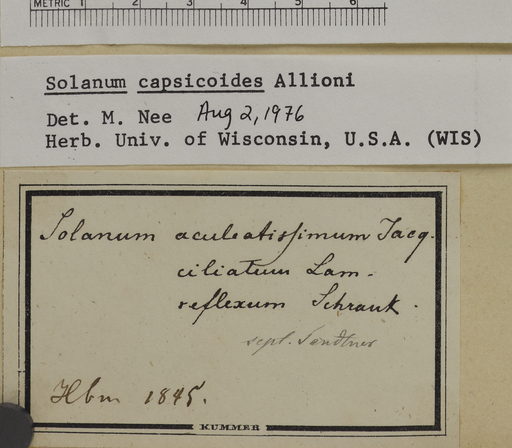 METRIC 1 2 3 4 5 6
Solanum capsicoides Allioni
Det. M. Nee Aug 2, 1976
Herb. Univ. of Wisconsin, U.S.A. (WIS)
Solanum aculeatissimum Jacq.
ciliatum Lam.
reflexum Schrank.
sept. Sendtner
Hbm 1845.
KUMMER